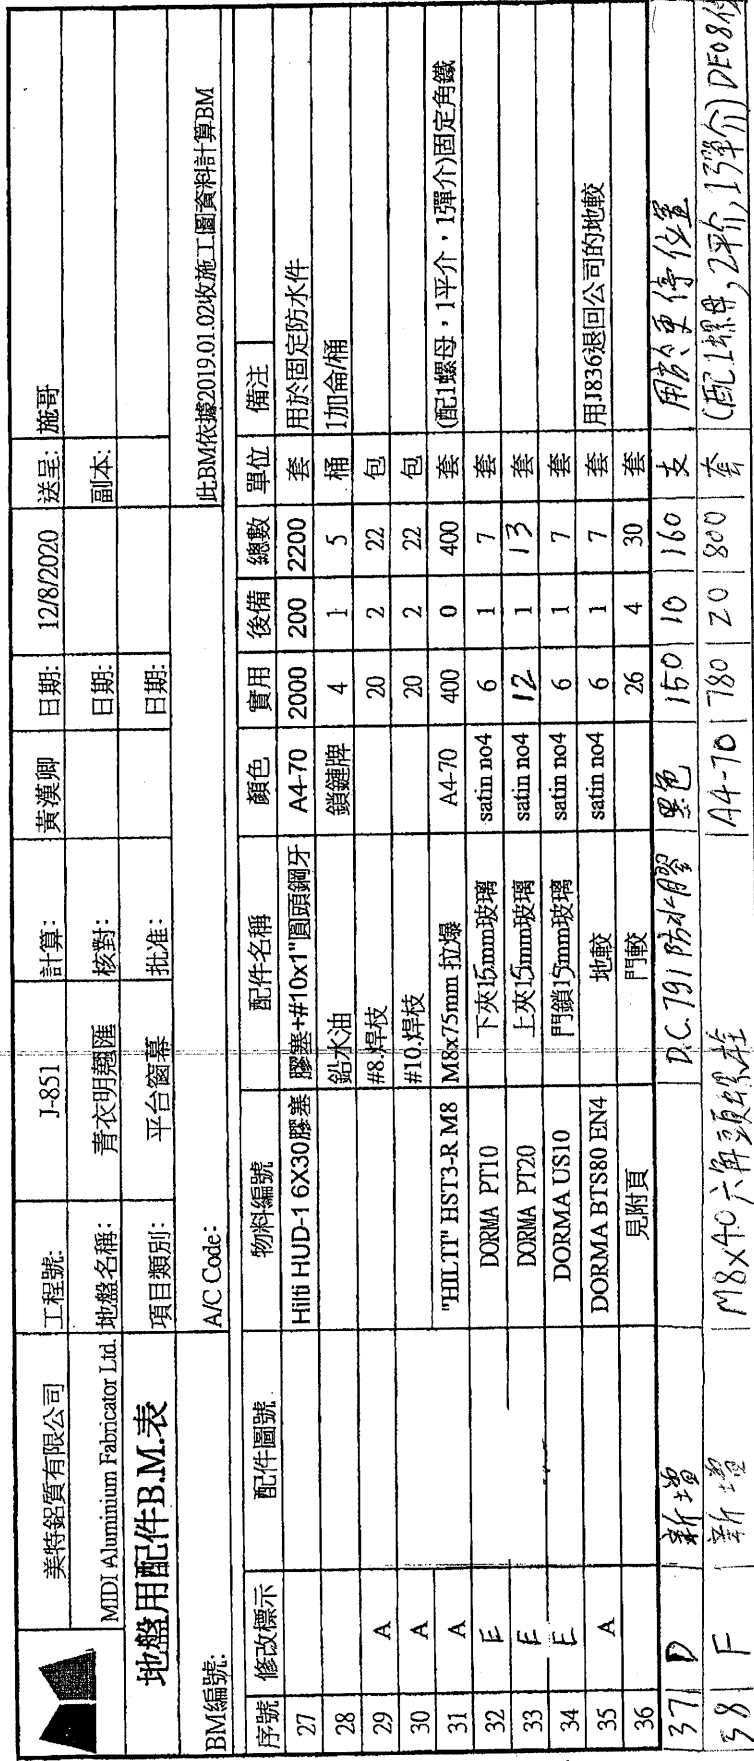 美特鋁質有限公司 工程號: J-851 計算: 黃漢卿 日期: 12/8/2020 送呈: 施哥
MIDI Aluminium Fabricator Ltd. 地盤名稱: 青衣明翹匯 核對: 日期: 副本:
地盤用配件B.M.表 項目類別: 平台窗幕 批准: 日期:
BM編號: A/C Code: 此BM依據2019.01.02收施工圖資料計算BM
序號 修改標示 配件圖號 物料編號 配件名稱 顏色 實用 後備 總數 單位 備注
27 Hilti HUD-1 6X30膠塞 膠塞+#10x1"圓頭鋼牙 A4-70 2000 200 2200 套 用於固定防水件
28 鉛水油 鎖鏈牌 4 1 5 桶 1加侖/桶
29 A #8.焊枝 20 2 22 包
30 A #10.焊枝 20 2 22 包
31 A "HILTI" HST3-R M8 M8x75mm 拉爆 A4-70 400 0 400 套 (配1螺母，1平介，1彈介)固定角鐵
32 E DORMA PT10 下夾15mm玻璃 satin no4 6 1 7 套
33 E DORMA PT20 上夾15mm玻璃 satin no4 12 1 13 套
34 E DORMA US10 門鎖15mm玻璃 satin no4 6 1 7 套
35 A DORMA BTS80 EN4 地較 satin no4 6 1 7 套 用J836退回公司的地較
36 見附頁 門較 26 4 30 套
37 D 新增 D.C.791防水膠 黑色 150 10 160 支 用於更停位置
38 F 新增 M8x40六角頭螺栓 A4-70 780 20 800 套 (配1螺母,2平介,1彈介) DE08